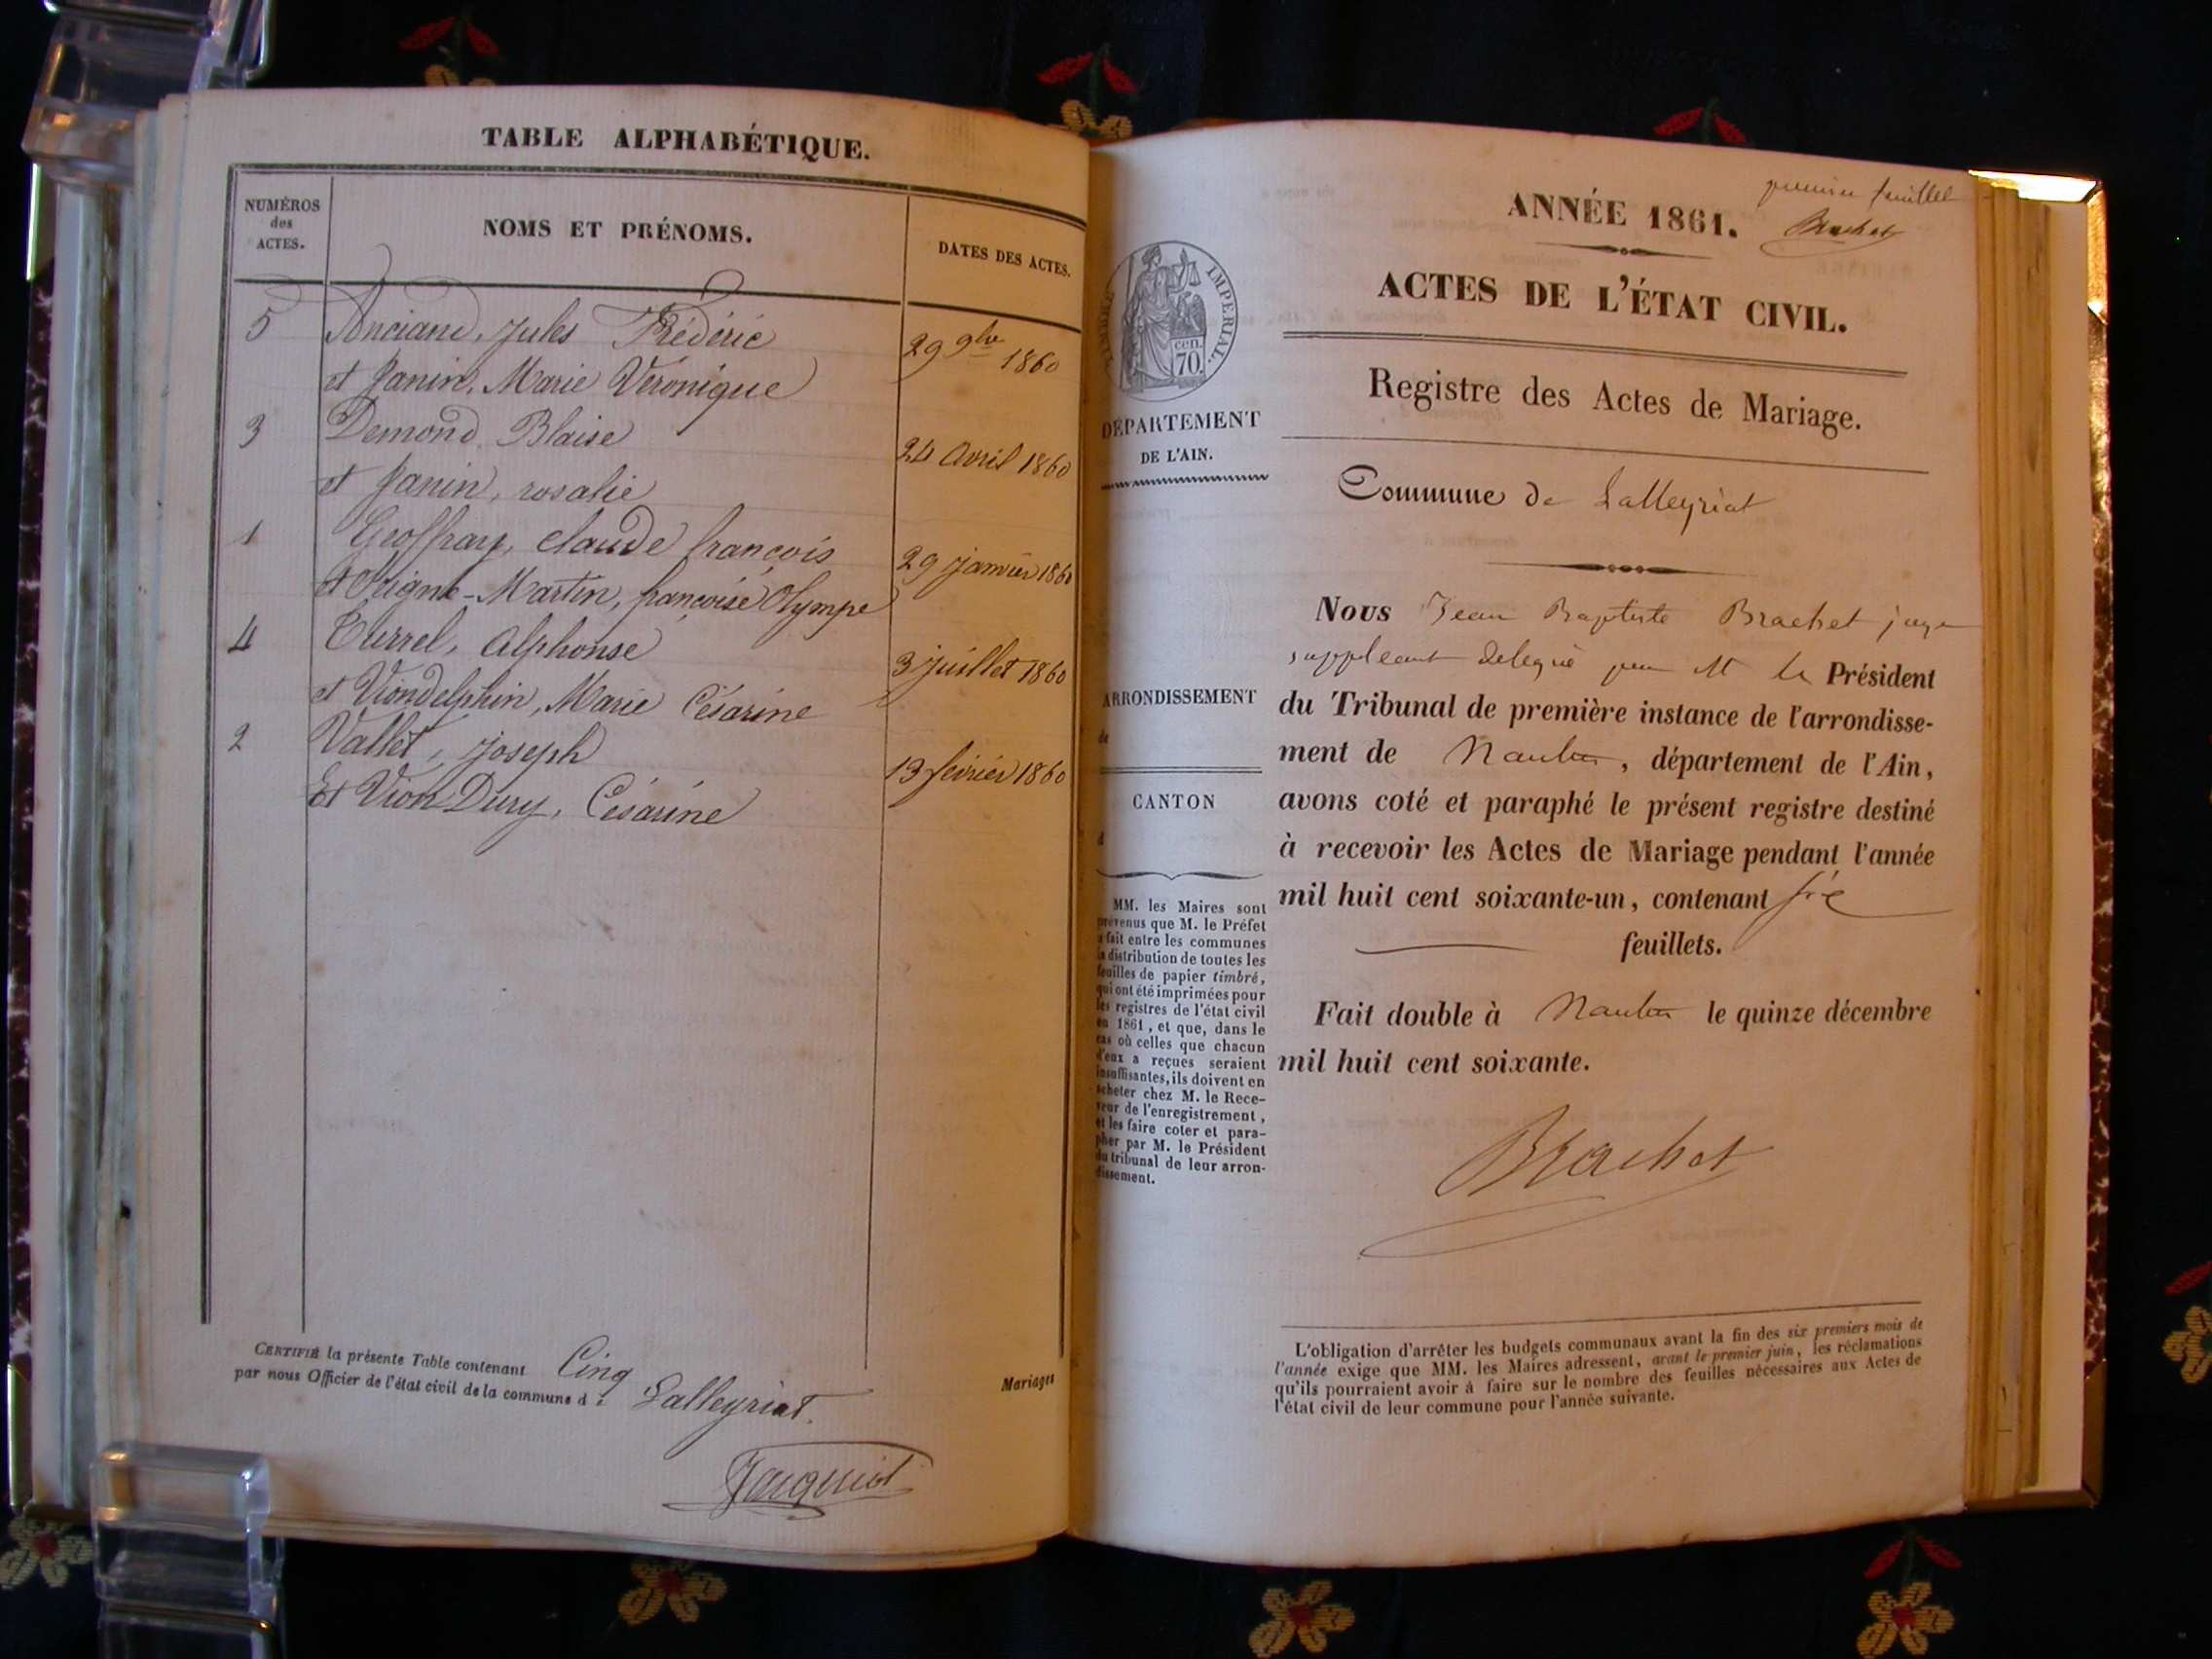 TABLE ALPHABÉTIQUE.
NUMÉROS
des
ACTES.
NOMS ET PRÉNOMS.
DATES DES ACTES.
5 Anciand, Jules Frédéric 29 9bre 1860
et Janin, Marie Véronique
3 Demond Blaise 24 avril 1860
et Janin, rosalie
1 Geoffray, claude françois 29 janvier 1860
et Martin, françoise Olympe
4 Turrel, Alphonse 3 juillet 1860
et Viondelphin, Marie Césarine
2 Vallet, joseph 13 février 1860
Et Vion Dury, Césarine
CERTIFIÉ la présente Table contenant Cinq Mariages
par nous Officier de l'état civil de la commune d : Lalleyriat.
Jacquiot
premier feuillet
Brachet
ANNÉE 1861.
ACTES DE L'ÉTAT CIVIL.
TIMBRE IMPERIAL.
cen.
70.
DÉPARTEMENT
DE L'AIN.
ARRONDISSEMENT
de
CANTON
d
MM. les Maires sont
prévenus que M. le Préfet
a fait entre les communes
la distribution de toutes les
feuilles de papier timbré,
qui ont été imprimées pour
les registres de l'état civil
en 1861, et que, dans le
cas où celles que chacun
d'eux a reçues seraient
insuffisantes, ils doivent en
acheter chez M. le Rece-
veur de l'enregistrement,
et les faire coter et para-
pher par M. le Président
du tribunal de leur arron-
dissement.
Registre des Actes de Mariage.
Commune de Lalleyriat
Nous Jean Baptiste Brachet juge
suppleant delegué par M le Président
du Tribunal de première instance de l'arrondisse-
ment de Nantua, département de l'Ain,
avons coté et paraphé le présent registre destiné
à recevoir les Actes de Mariage pendant l'année
mil huit cent soixante-un, contenant
feuillets.
Fait double à Nantua le quinze décembre
mil huit cent soixante.
Brachet
L'obligation d'arrêter les budgets communaux avant la fin des six premiers mois de
l'année exige que MM. les Maires adressent, avant le premier juin, les réclamations
qu'ils pourraient avoir à faire sur le nombre des feuilles nécessaires aux Actes de
l'état civil de leur commune pour l'année suivante.